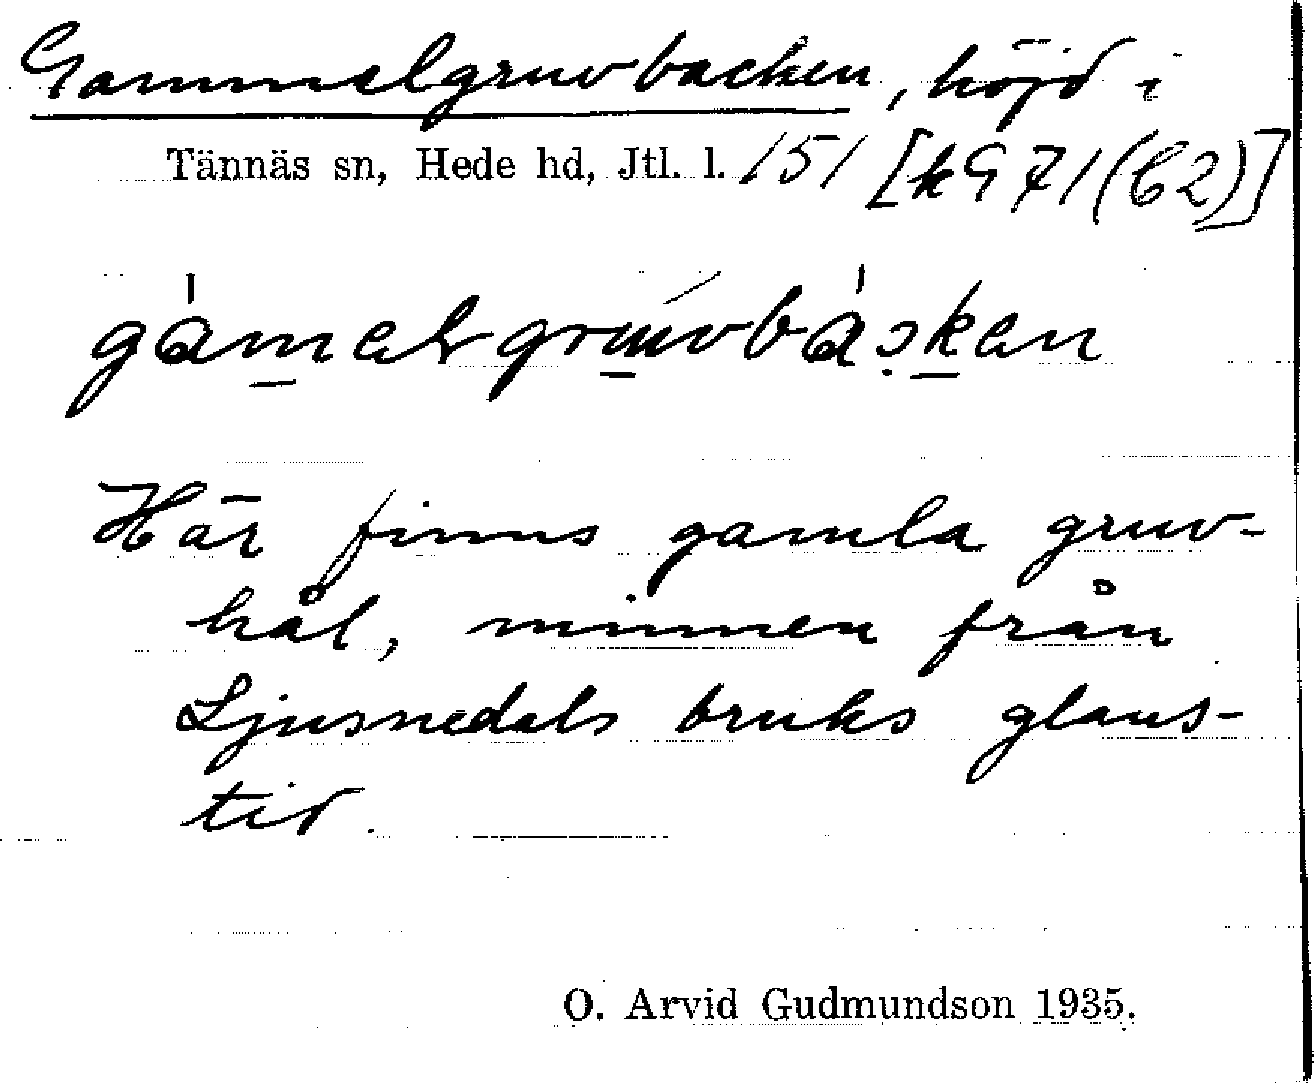 Gammelgruvbacken, höjd i
Tännäs sn, Hede hd, Jtl. l. 151 [k971(C2)]
gàmelgruvbàsken
Här finns gamla gruv-
hål, minnen från
Ljusnedals bruks glans-
tid.
O. Arvid Gudmundson 1935.